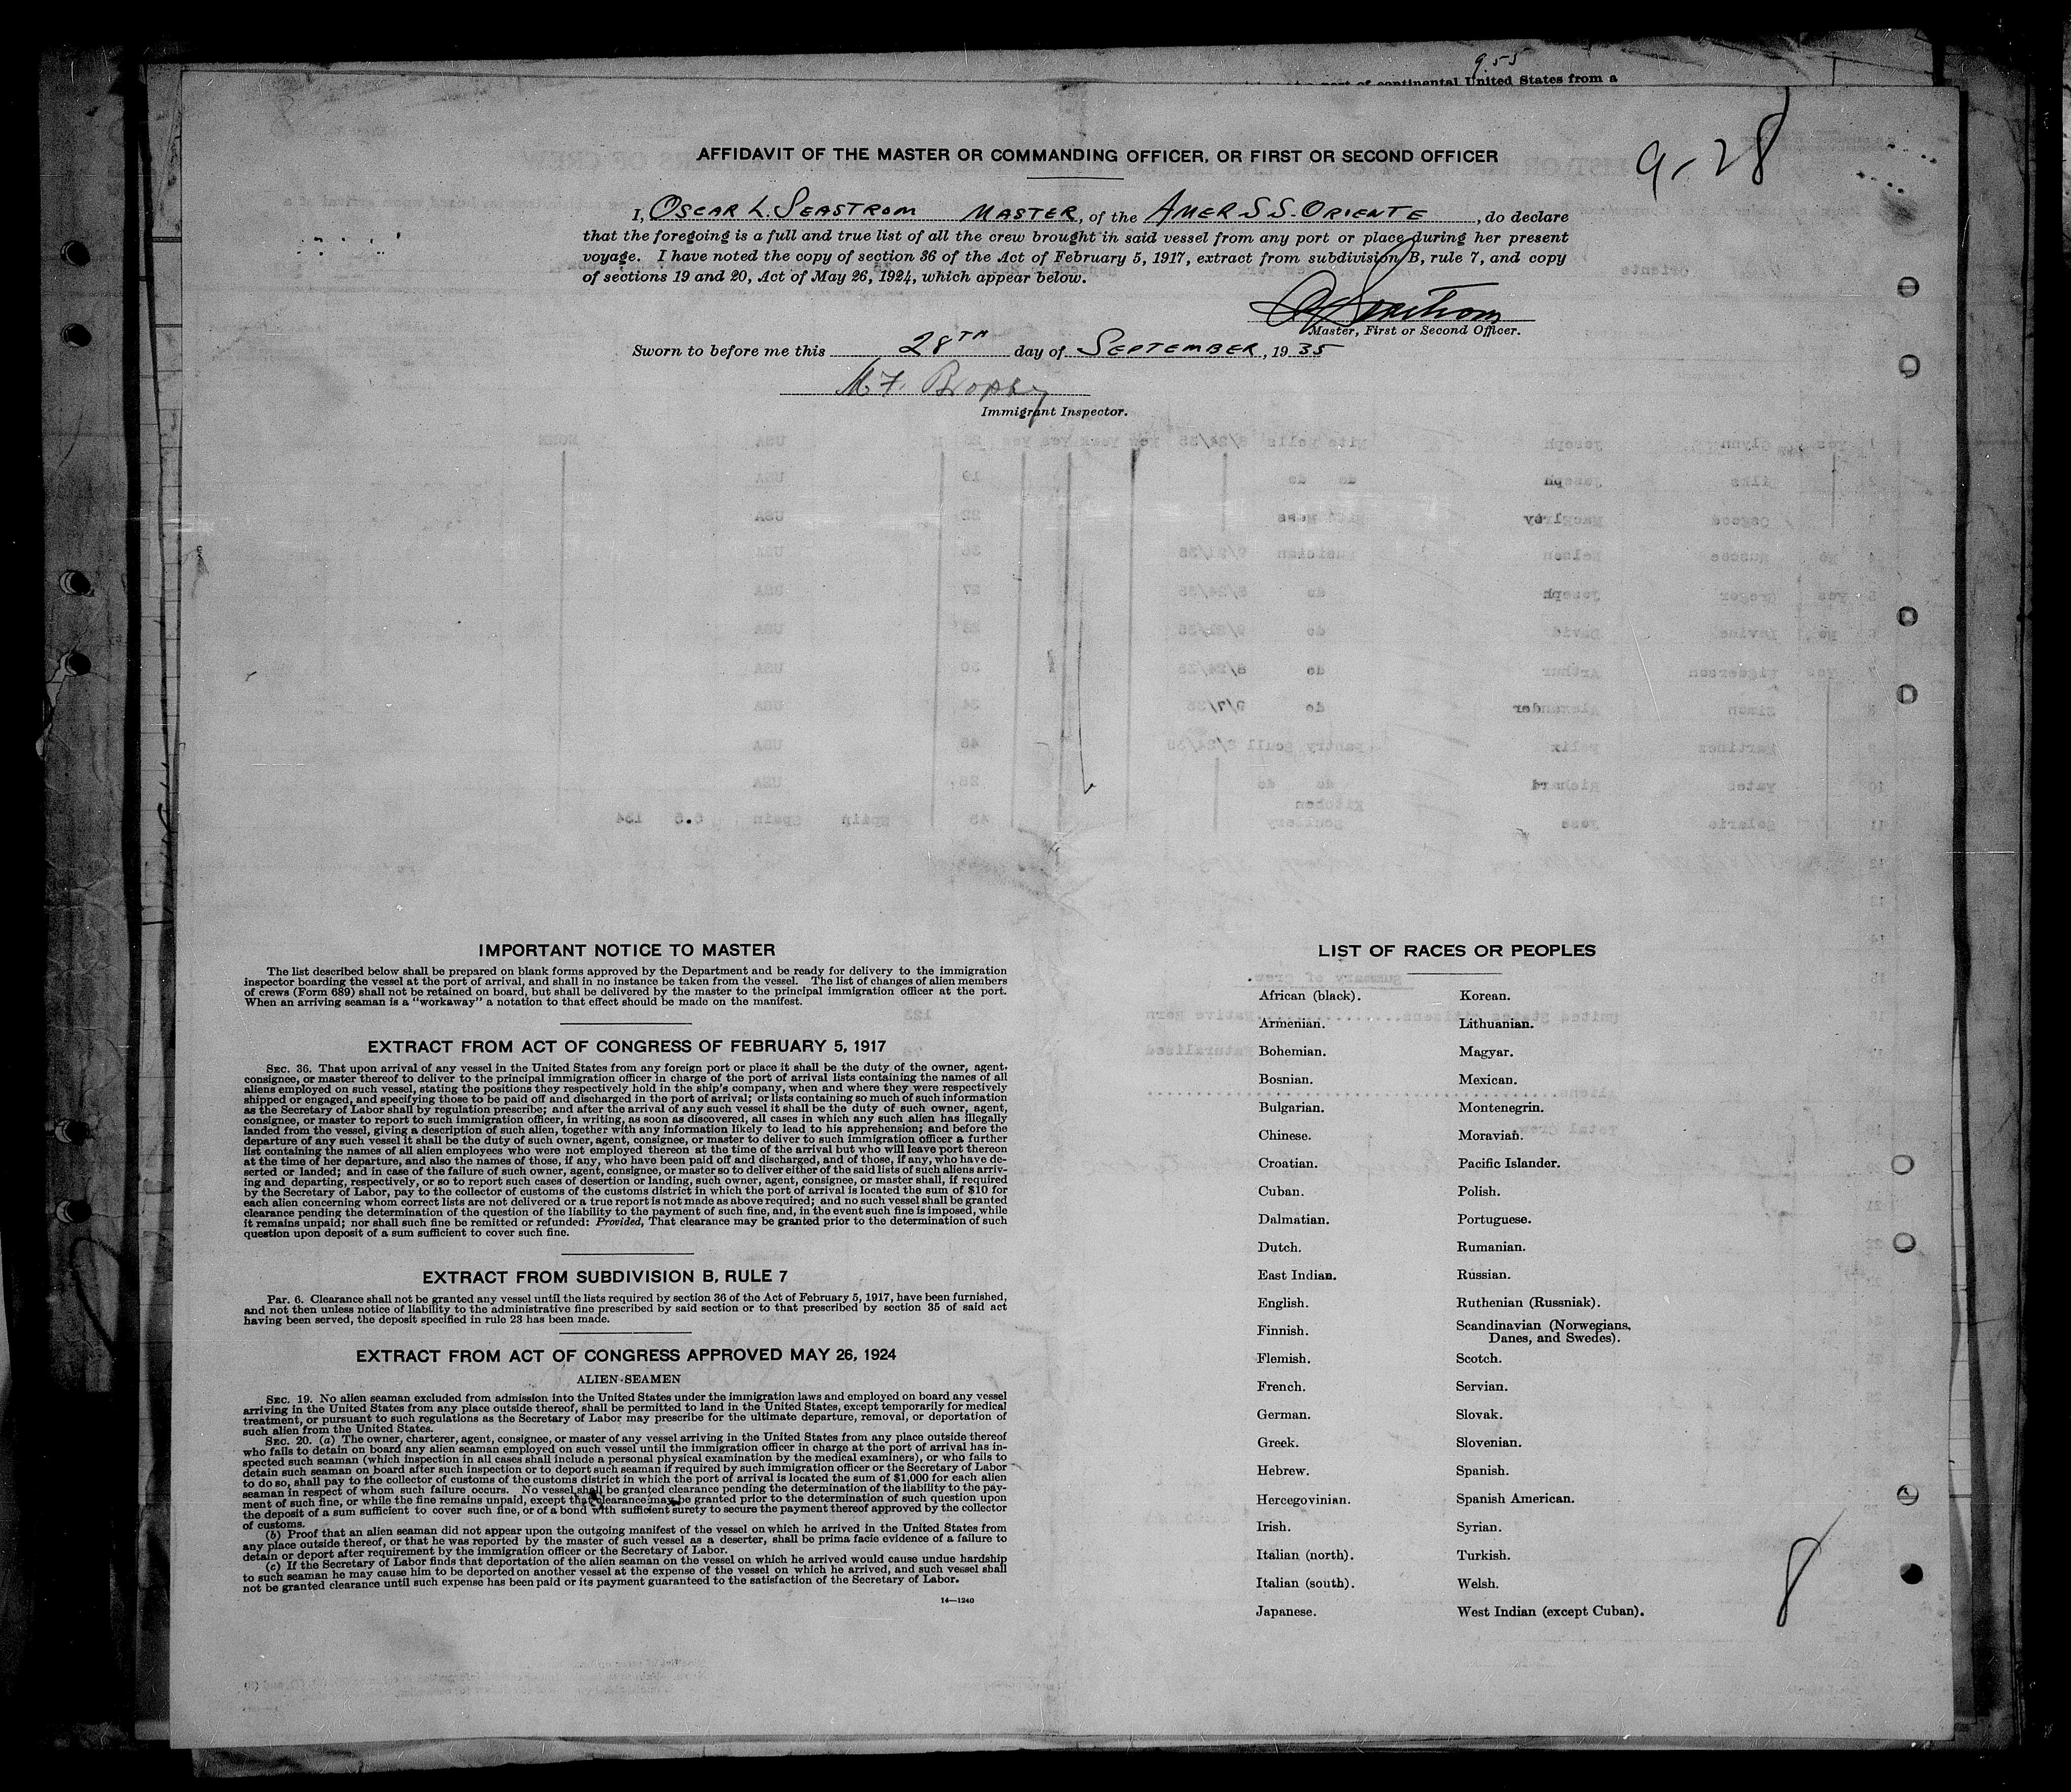 9.55
continental United States from a
9-28
AFFIDAVIT OF THE MASTER OR COMMANDING OFFICER, OR FIRST OR SECOND OFFICER
I, OSCAR L. SEASTROM MASTER, of the AMER SS. ORIENTE, do declare
that the foregoing is a full and true list of all the crew brought in said vessel from any port or place during her present
voyage. I have noted the copy of section 36 of the Act of February 5, 1917, extract from subdivision B, rule 7, and copy
of sections 19 and 20, Act of May 26, 1924, which appear below.
Master, First or Second Officer.
Sworn to before me this 28TH day of SEPTEMBER, 1935
M.F. Brophy
Immigrant Inspector.
IMPORTANT NOTICE TO MASTER
The list described below shall be prepared on blank forms approved by the Department and be ready for delivery to the immigration
inspector boarding the vessel at the port of arrival, and shall in no instance be taken from the vessel. The list of changes of alien members
of crews (Form 689) shall not be retained on board, but shall be delivered by the master to the principal immigration officer at the port.
When an arriving seaman is a "workaway" a notation to that effect should be made on the manifest.
EXTRACT FROM ACT OF CONGRESS OF FEBRUARY 5, 1917
SEC. 36. That upon arrival of any vessel in the United States from any foreign port or place it shall be the duty of the owner, agent,
consignee, or master thereof to deliver to the principal immigration officer in charge of the port of arrival lists containing the names of all
aliens employed on such vessel, stating the positions they respectively hold in the ship's company, when and where they were respectively
shipped or engaged, and specifying those to be paid off and discharged in the port of arrival; or lists containing so much of such information
as the Secretary of Labor shall by regulation prescribe; and after the arrival of any such vessel it shall be the duty of such owner, agent,
consignee, or master to report to such immigration officer, in writing, as soon as discovered, all cases in which any such alien has illegally
landed from the vessel, giving a description of such alien, together with any information likely to lead to his apprehension; and before the
departure of any such vessel it shall be the duty of such owner, agent, consignee, or master to deliver to such immigration officer a further
list containing the names of all alien employees who were not employed thereon at the time of the arrival but who will leave port thereon
at the time of her departure, and also the names of those, if any, who have been paid off and discharged, and of those, if any, who have de-
serted or landed; and in case of the failure of such owner, agent, consignee, or master so to deliver either of the said lists of such aliens arriv-
ing and departing, respectively, or so to report such cases of desertion or landing, such owner, agent, consignee, or master shall, if required
by the Secretary of Labor, pay to the collector of customs of the customs district in which the port of arrival is located the sum of $10 for
each alien concerning whom correct lists are not delivered or a true report is not made as above required; and no such vessel shall be granted
clearance pending the determination of the question of the liability to the payment of such fine, and, in the event such fine is imposed, while
it remains unpaid; nor shall such fine be remitted or refunded: Provided, That clearance may be granted prior to the determination of such
question upon deposit of a sum sufficient to cover such fine.
EXTRACT FROM SUBDIVISION B, RULE 7
Par. 6. Clearance shall not be granted any vessel until the lists required by section 36 of the Act of February 5, 1917, have been furnished,
and not then unless notice of liability to the administrative fine prescribed by said section or to that prescribed by section 35 of said act
having been served, the deposit specified in rule 23 has been made.
EXTRACT FROM ACT OF CONGRESS APPROVED MAY 26, 1924
ALIEN SEAMEN
SEC. 19. No alien seaman excluded from admission into the United States under the immigration laws and employed on board any vessel
arriving in the United States from any place outside thereof, shall be permitted to land in the United States, except temporarily for medical
treatment, or pursuant to such regulations as the Secretary of Labor may prescribe for the ultimate departure, removal, or deportation of
such alien from the United States.
SEC. 20. (a) The owner, charterer, agent, consignee, or master of any vessel arriving in the United States from any place outside thereof
who fails to detain on board any alien seaman employed on such vessel until the immigration officer in charge at the port of arrival has in-
spected such seaman (which inspection in all cases shall include a personal physical examination by the medical examiners), or who fails to
detain such seaman on board after such inspection or to deport such seaman if required by such immigration officer or the Secretary of Labor
to do so, shall pay to the collector of customs of the customs district in which the port of arrival is located the sum of $1,000 for each alien
seaman in respect of whom such failure occurs. No vessel shall be granted clearance pending the determination of the liability to the pay-
ment of such fine, or while the fine remains unpaid, except that clearance may be granted prior to the determination of such question upon
the deposit of a sum sufficient to cover such fine, or of a bond with sufficient surety to secure the payment thereof approved by the collector
of customs.
(b) Proof that an alien seaman did not appear upon the outgoing manifest of the vessel on which he arrived in the United States from
any place outside thereof, or that he was reported by the master of such vessel as a deserter, shall be prima facie evidence of a failure to
detain or deport after requirement by the immigration officer or the Secretary of Labor.
(c) If the Secretary of Labor finds that deportation of the alien seaman on the vessel on which he arrived would cause undue hardship
to such seaman he may cause him to be deported on another vessel at the expense of the vessel on which he arrived, and such vessel shall
not be granted clearance until such expense has been paid or its payment guaranteed to the satisfaction of the Secretary of Labor.
14—1240
LIST OF RACES OR PEOPLES
African (black).
Armenian.
Bohemian.
Bosnian.
Bulgarian.
Chinese.
Croatian.
Cuban.
Dalmatian.
Dutch.
East Indian.
English.
Finnish.
Flemish.
French.
German.
Greek.
Hebrew.
Hercegovinian.
Irish.
Italian (north).
Italian (south).
Japanese.
Korean.
Lithuanian.
Magyar.
Mexican.
Montenegrin.
Moravian.
Pacific Islander.
Polish.
Portuguese.
Rumanian.
Russian.
Ruthenian (Russniak).
Scandinavian (Norwegians,
Danes, and Swedes).
Scotch.
Servian.
Slovak.
Slovenian.
Spanish.
Spanish American.
Syrian.
Turkish.
Welsh.
West Indian (except Cuban).
8